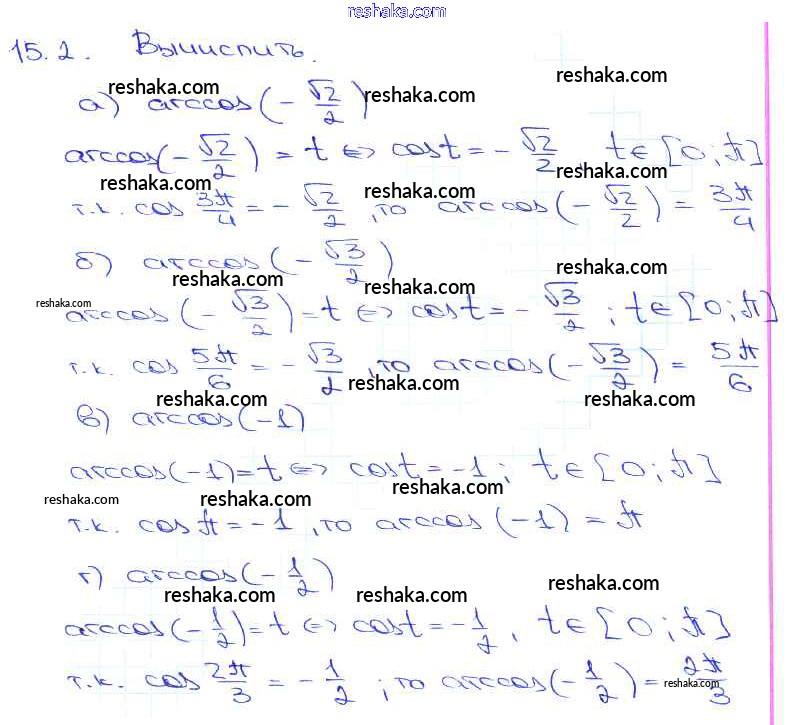 reshaka.com
15.2. Вычислить.
reshaka.com reshaka.com reshaka.com
а) arccos(-√2/2)
arccos(-√2/2) = t ⇔ cos t = -√2/2, t∈[0;π]
reshaka.com reshaka.com reshaka.com
т.к. cos 3π/4 = -√2/2, то arccos(-√2/2) = 3π/4
б) arccos(-√3/2)
reshaka.com reshaka.com reshaka.com reshaka.com
arccos(-√3/2) = t ⇔ cos t = -√3/2; t∈[0;π]
т.к. cos 5π/6 = -√3/2, то arccos(-√3/2) = 5π/6
reshaka.com reshaka.com reshaka.com
в) arccos(-1)
arccos(-1) = t ⇔ cos t = -1; t∈[0;π]
reshaka.com reshaka.com reshaka.com reshaka.com
т.к. cos π = -1, то arccos(-1) = π
г) arccos(-1/2)
reshaka.com reshaka.com reshaka.com
arccos(-1/2) = t ⇔ cos t = -1/2, t∈[0;π]
т.к. cos 2π/3 = -1/2; то arccos(-1/2) = 2π/3
reshaka.com reshaka.com reshaka.com